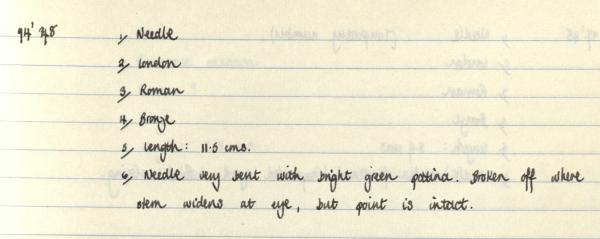 94' 48 1, Needle
2, London
3, Roman
4, Bronze
5, Length: 11.5 cms.
6, Needle very bent with bright green patina. Broken off where
stem widens at eye, but point is intact.